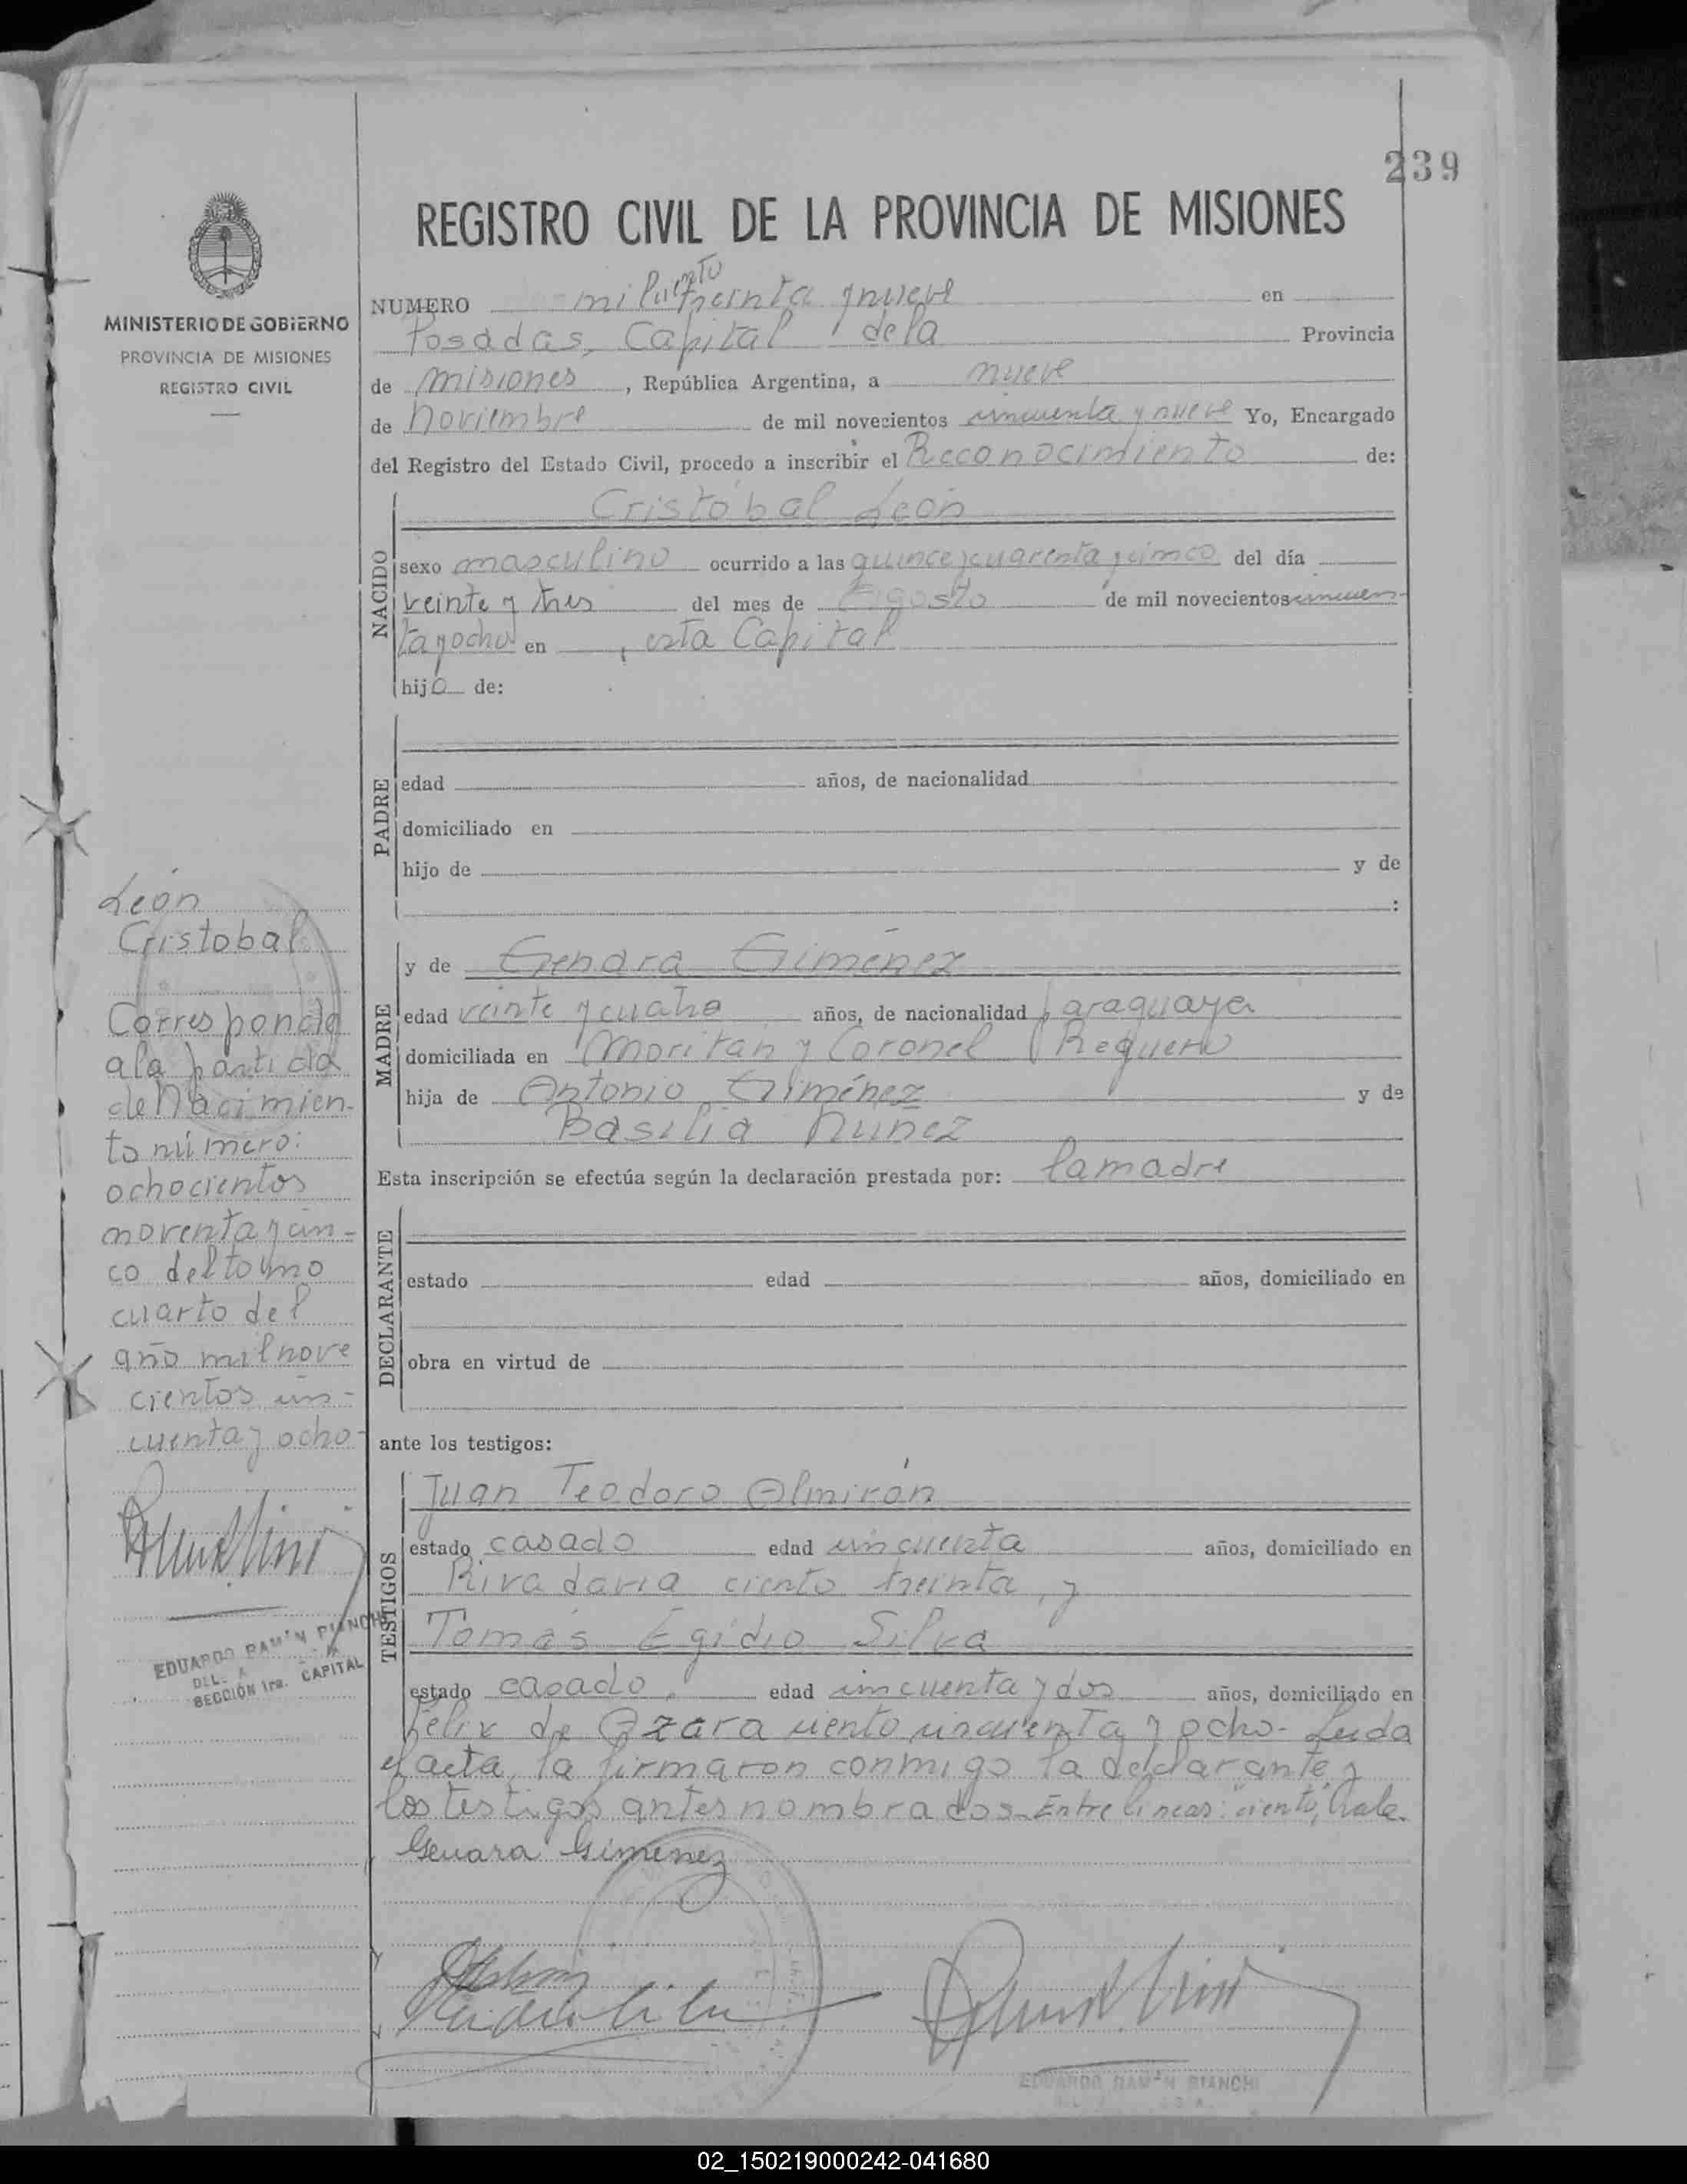 239
REGISTRO CIVIL DE LA PROVINCIA DE MISIONES
MINISTERIO DE GOBIERNO
PROVINCIA DE MISIONES
REGISTRO CIVIL
ciento
NUMERO mil treinta y nueve en
Posadas, Capital de la Provincia
de misiones, República Argentina, a nueve
de noviembre de mil novecientos cincuenta y nueve Yo, Encargado
del Registro del Estado Civil, procedo a inscribir el Reconocimiento de:
NACIDO
Cristóbal León
sexo masculino ocurrido a las quince y cuarenta y cinco del día
veinte y tres del mes de Agosto de mil novecientos cincuen-
ta y ocho en, esta Capital
hijo de:
PADRE
edad años, de nacionalidad
domiciliado en
hijo de y de
:
MADRE
y de Genara Giménez
edad veinte y cuatro años, de nacionalidad paraguaya
domiciliada en Moritán y Coronel Reguera
hija de Antonio Giménez y de
Basilia Nuñez
Esta inscripción se efectúa según la declaración prestada por: la madre
DECLARANTE
estado edad años, domiciliado en
obra en virtud de
ante los testigos:
TESTIGOS
Juan Teodoro Almirón
estado casado edad cincuenta años, domiciliado en
Rivadavia ciento treinta y
Tomás Egidio Silva
estado casado, edad cincuenta y dos años, domiciliado en
Felix de Azara ciento cincuenta y ocho- Leida
el acta, la firmaron conmigo la declarante y
los testigos antes nombrados- Entre lineas: "ciento", Vale.
Genara Gimenez
EDUARDO RAMÓN BIANCHI
León
Cristobal
Corresponde
a la partida
de Nacimien-
to número:
ochocientos
noventa y cin-
co del tomo
cuarto del
año mil nove
cientos cin-
cuenta y ocho-
EDUARDO RAMÓN BIANCHI
SECCIÓN 1ra. CAPITAL
02_150219000242-041680